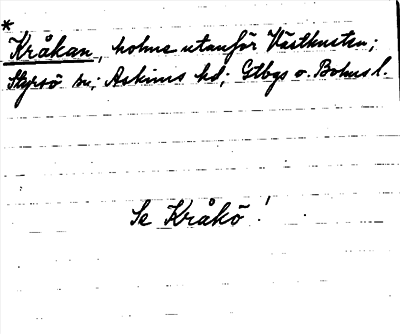 *
Kråkan, holme utanför Västkusten;
Styrsö sn; Askims hd; Gtbgs o. Bohus l.
Se Kråkö!